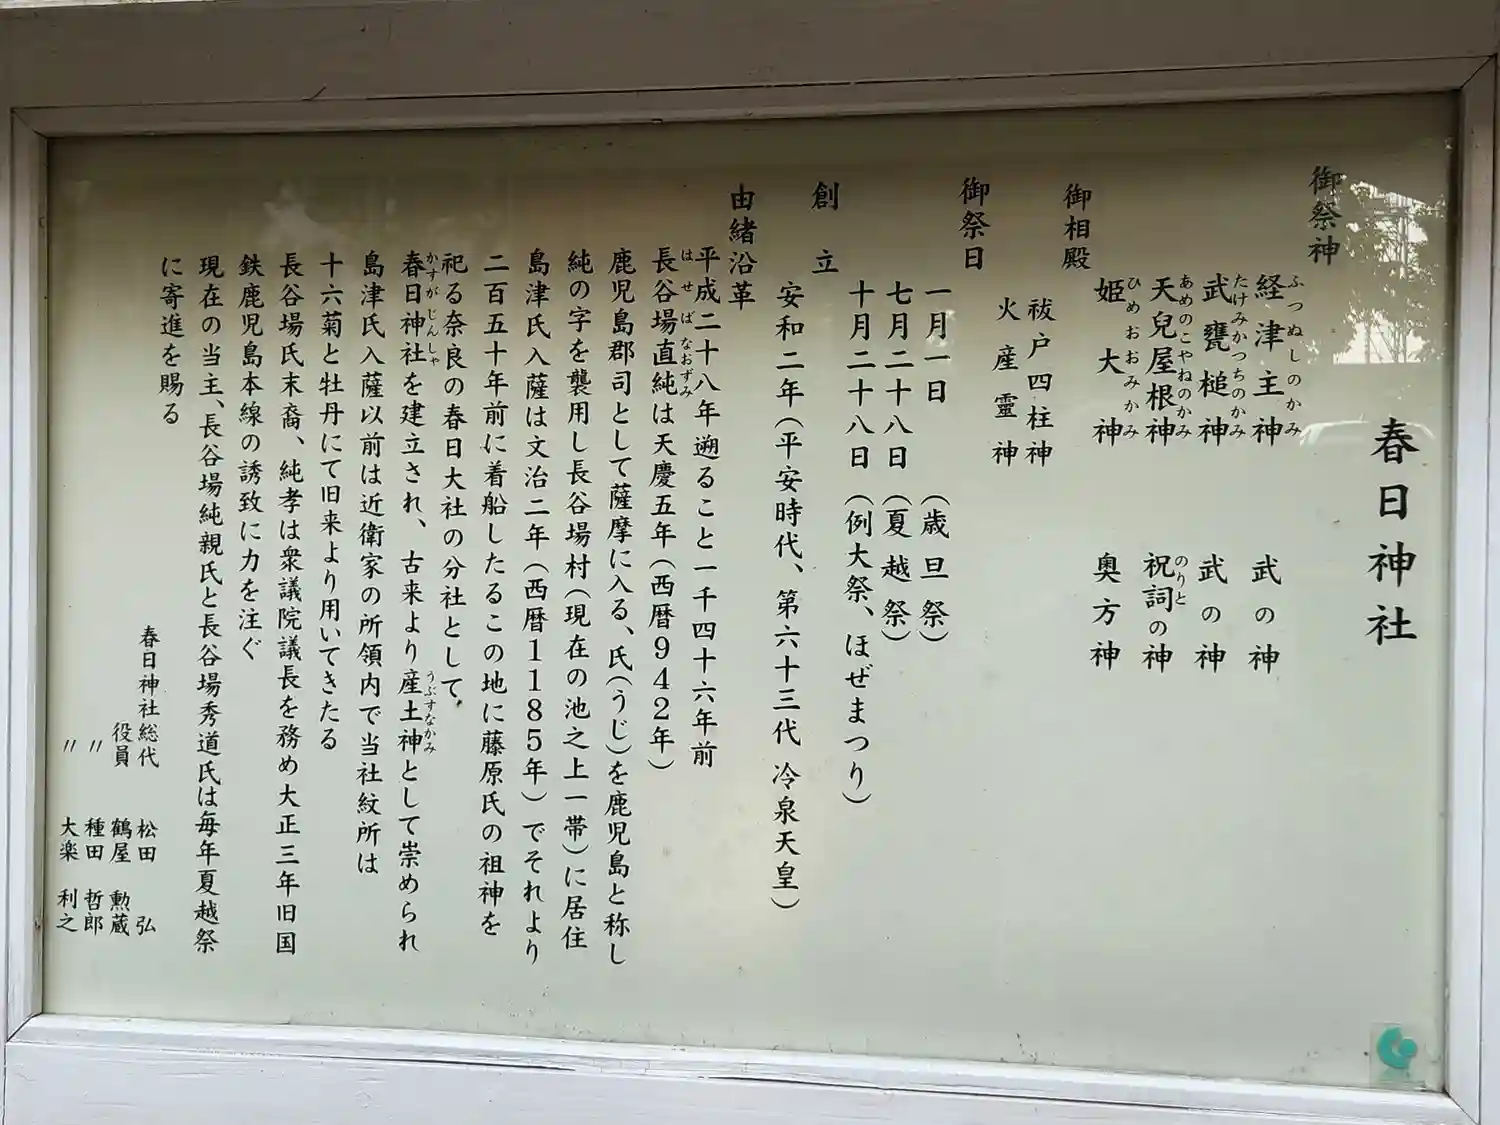 春日神社
御祭神
経津主神 武の神
ふつぬしのかみ
武甕槌神 武の神
たけみかつちのかみ
天兒屋根神 祝詞の神
あめのこやねのかみ のりと
姫大神 奥方神
ひめおおみかみ
御相殿
祓戸四柱神
火産靈神
御祭日
一月一日 (歳旦祭)
七月二十八日 (夏越祭)
十月二十八日 (例大祭、ほぜまつり)
創立
安和二年(平安時代、第六十三代 冷泉天皇)
由緒沿革
平成二十八年遡ること一千四十六年前
長谷場直純は天慶五年(西暦942年)
はせばなおずみ
鹿児島郡司として薩摩に入る、氏(うじ)を鹿児島と称し
純の字を襲用し長谷場村(現在の池之上一帯)に居住
島津氏入薩は文治二年(西暦1185年)でそれより
二百五十年前に着船したるこの地に藤原氏の祖神を
祀る奈良の春日大社の分社として、
春日神社を建立され、古来より産土神として崇められ
かすがじんしゃ うぶすなかみ
島津氏入薩以前は近衛家の所領内で当社紋所は
十六菊と牡丹にて旧来より用いてきたる
長谷場氏末裔、純孝は衆議院議長を務め大正三年旧国
鉄鹿児島本線の誘致に力を注ぐ
現在の当主、長谷場純親氏と長谷場秀道氏は毎年夏越祭
に寄進を賜る
春日神社総代 松田 弘
役員 鶴屋 勲蔵
〃 種田 哲郎
〃 大楽 利之